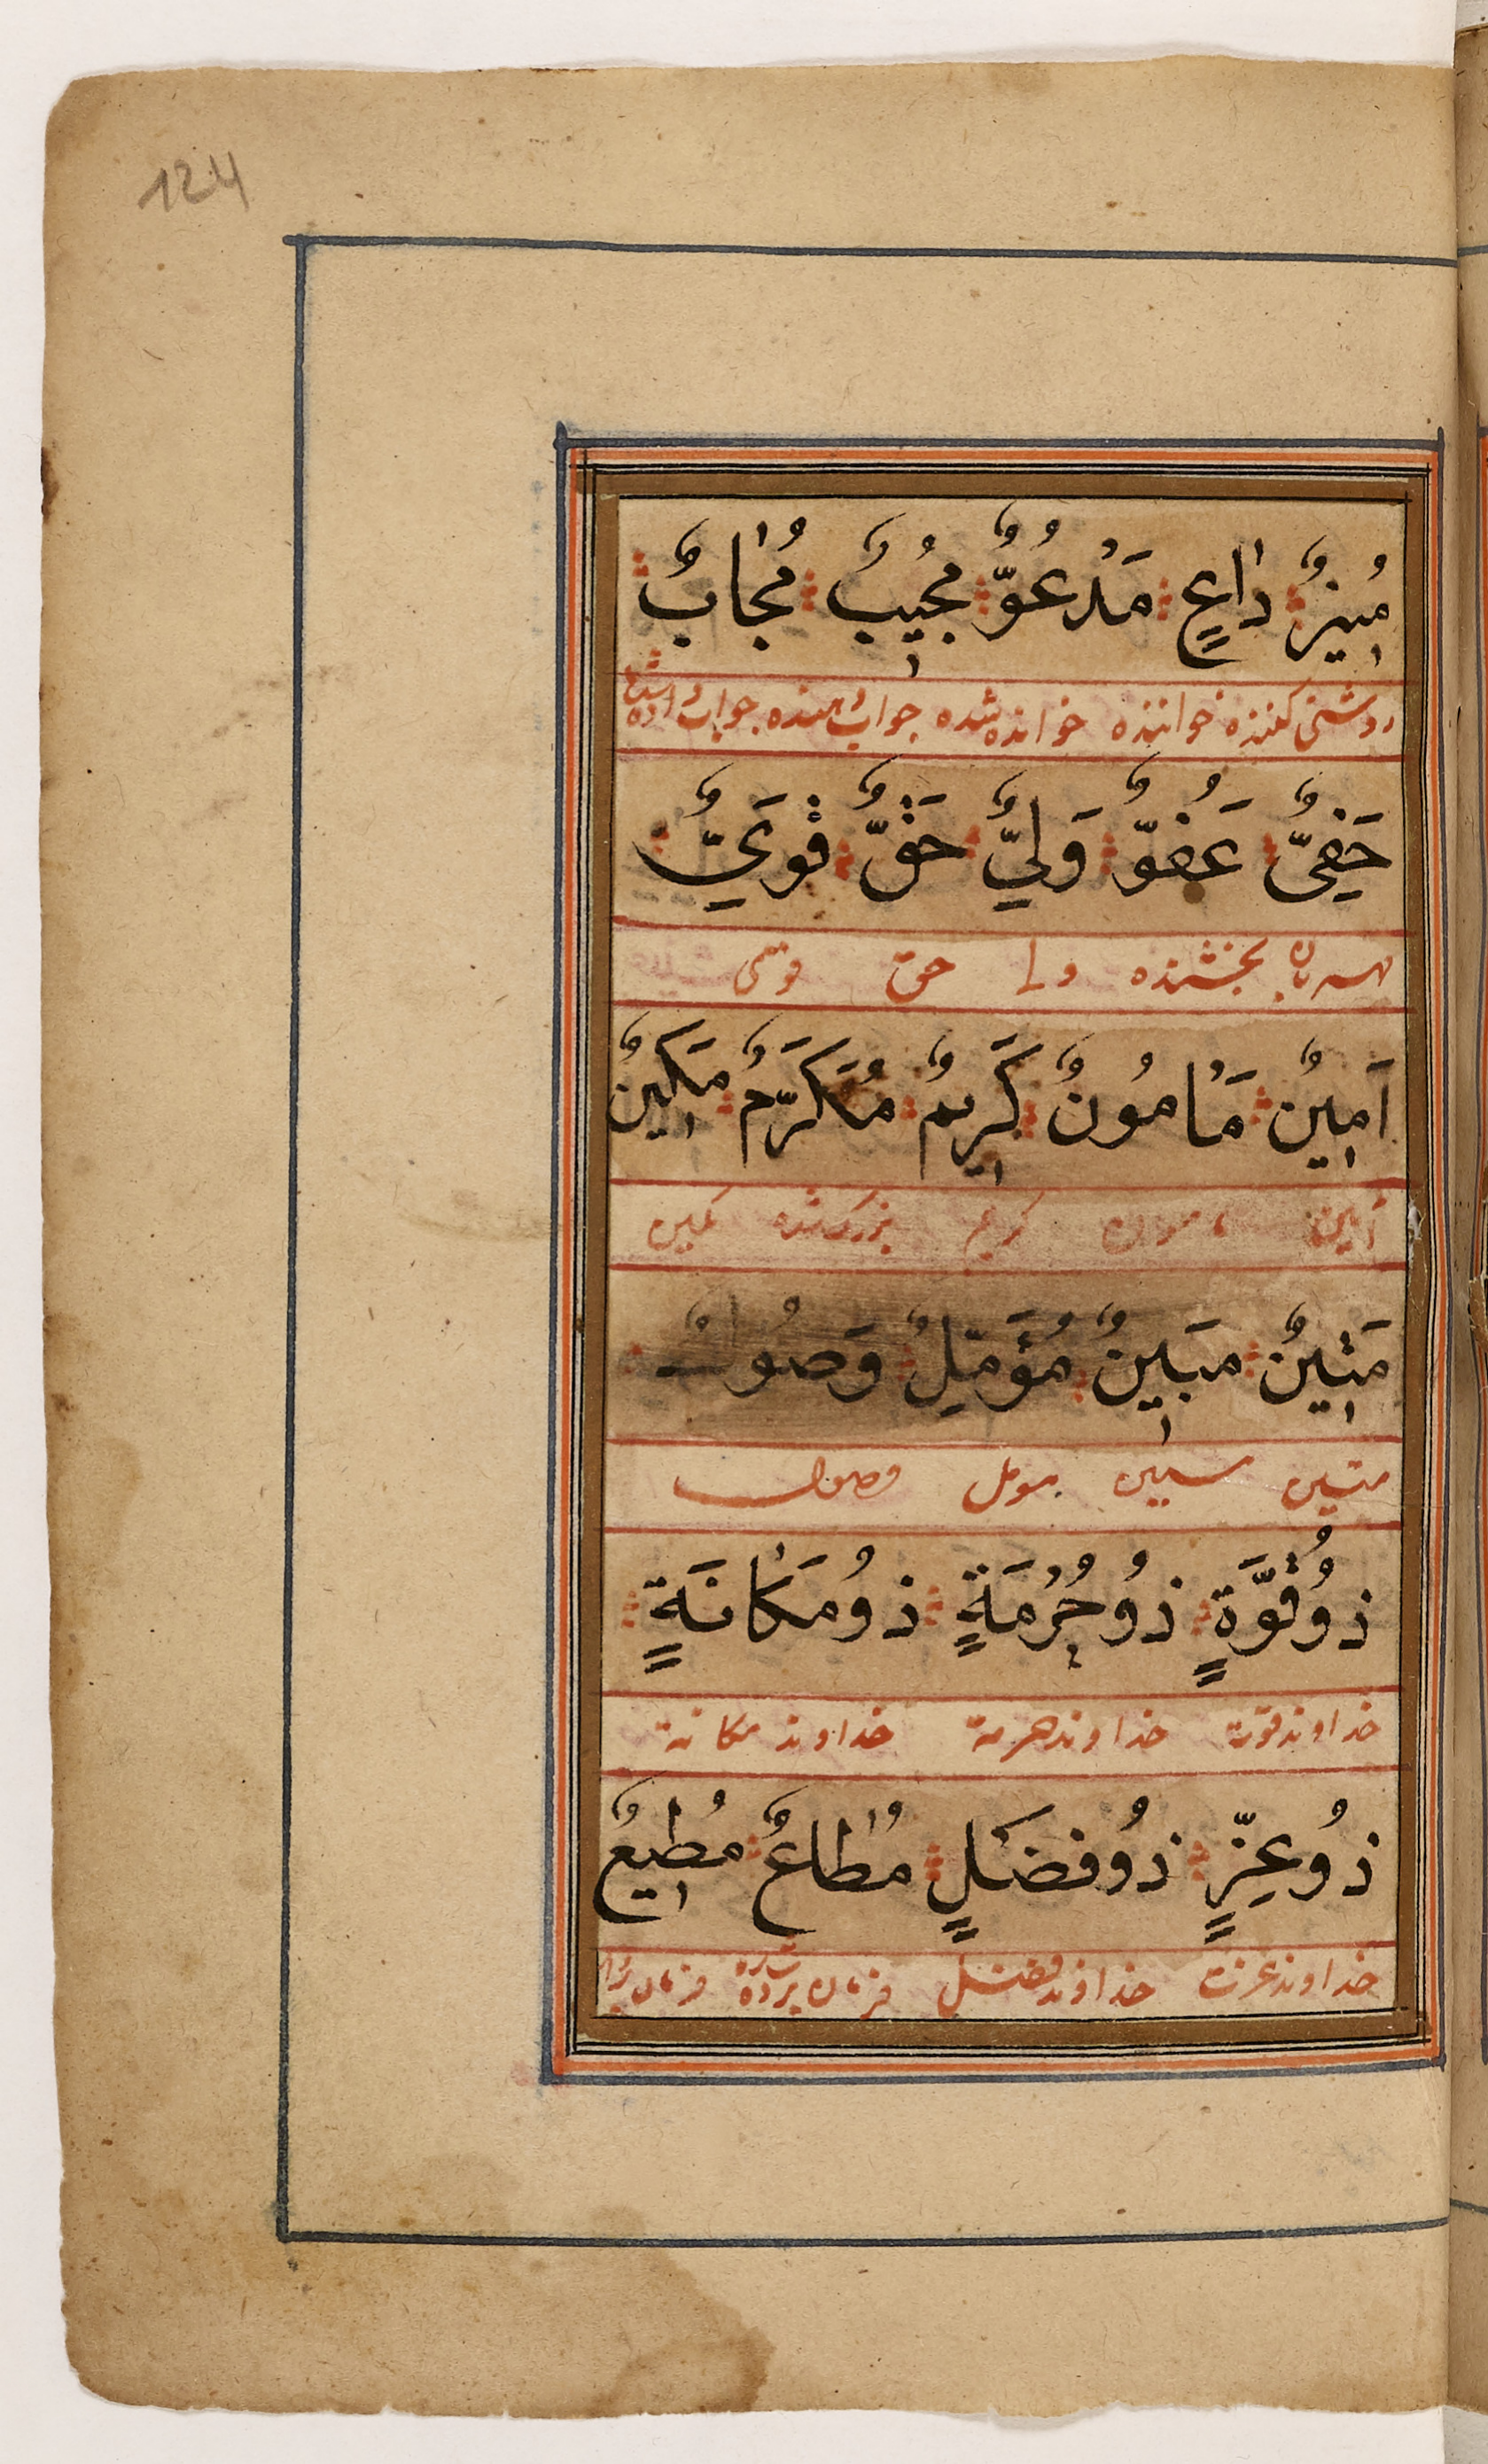 124
مُنِيرٌ دَاعٍ مَدْعُوٌّ مُجِيبٌ مُجَابٌ
روشنی کننده خواننده خوانده شده جواب دهنده جواب داده شده
حَفِيٌّ عَفُوٌّ وَلِيٌّ حَقٌّ قَوِيٌّ
مهربان بخشنده ولی حق قوی
اَمِينٌ مَأمُونٌ كَرِيمٌ مُكَرَّمٌ مَكِينٌ
امین مامون کریم بزرک شده مکین
مَتِينٌ مُبِينٌ مُؤَمِّلٌ وَصُولٌ
متین مبین مومل وصول
ذُو قُوَّةٍ ذُو حُرْمَةٍ ذُو مَكَانَةٍ
خداوند قوت خداوند حرمة خداوند مکانة
ذُو عِزٍّ ذُو فَضْلٍ مُطَاعٌ مُطِيعٌ
خداوند عزت خداوند فضل فرمان برده شده فرمان